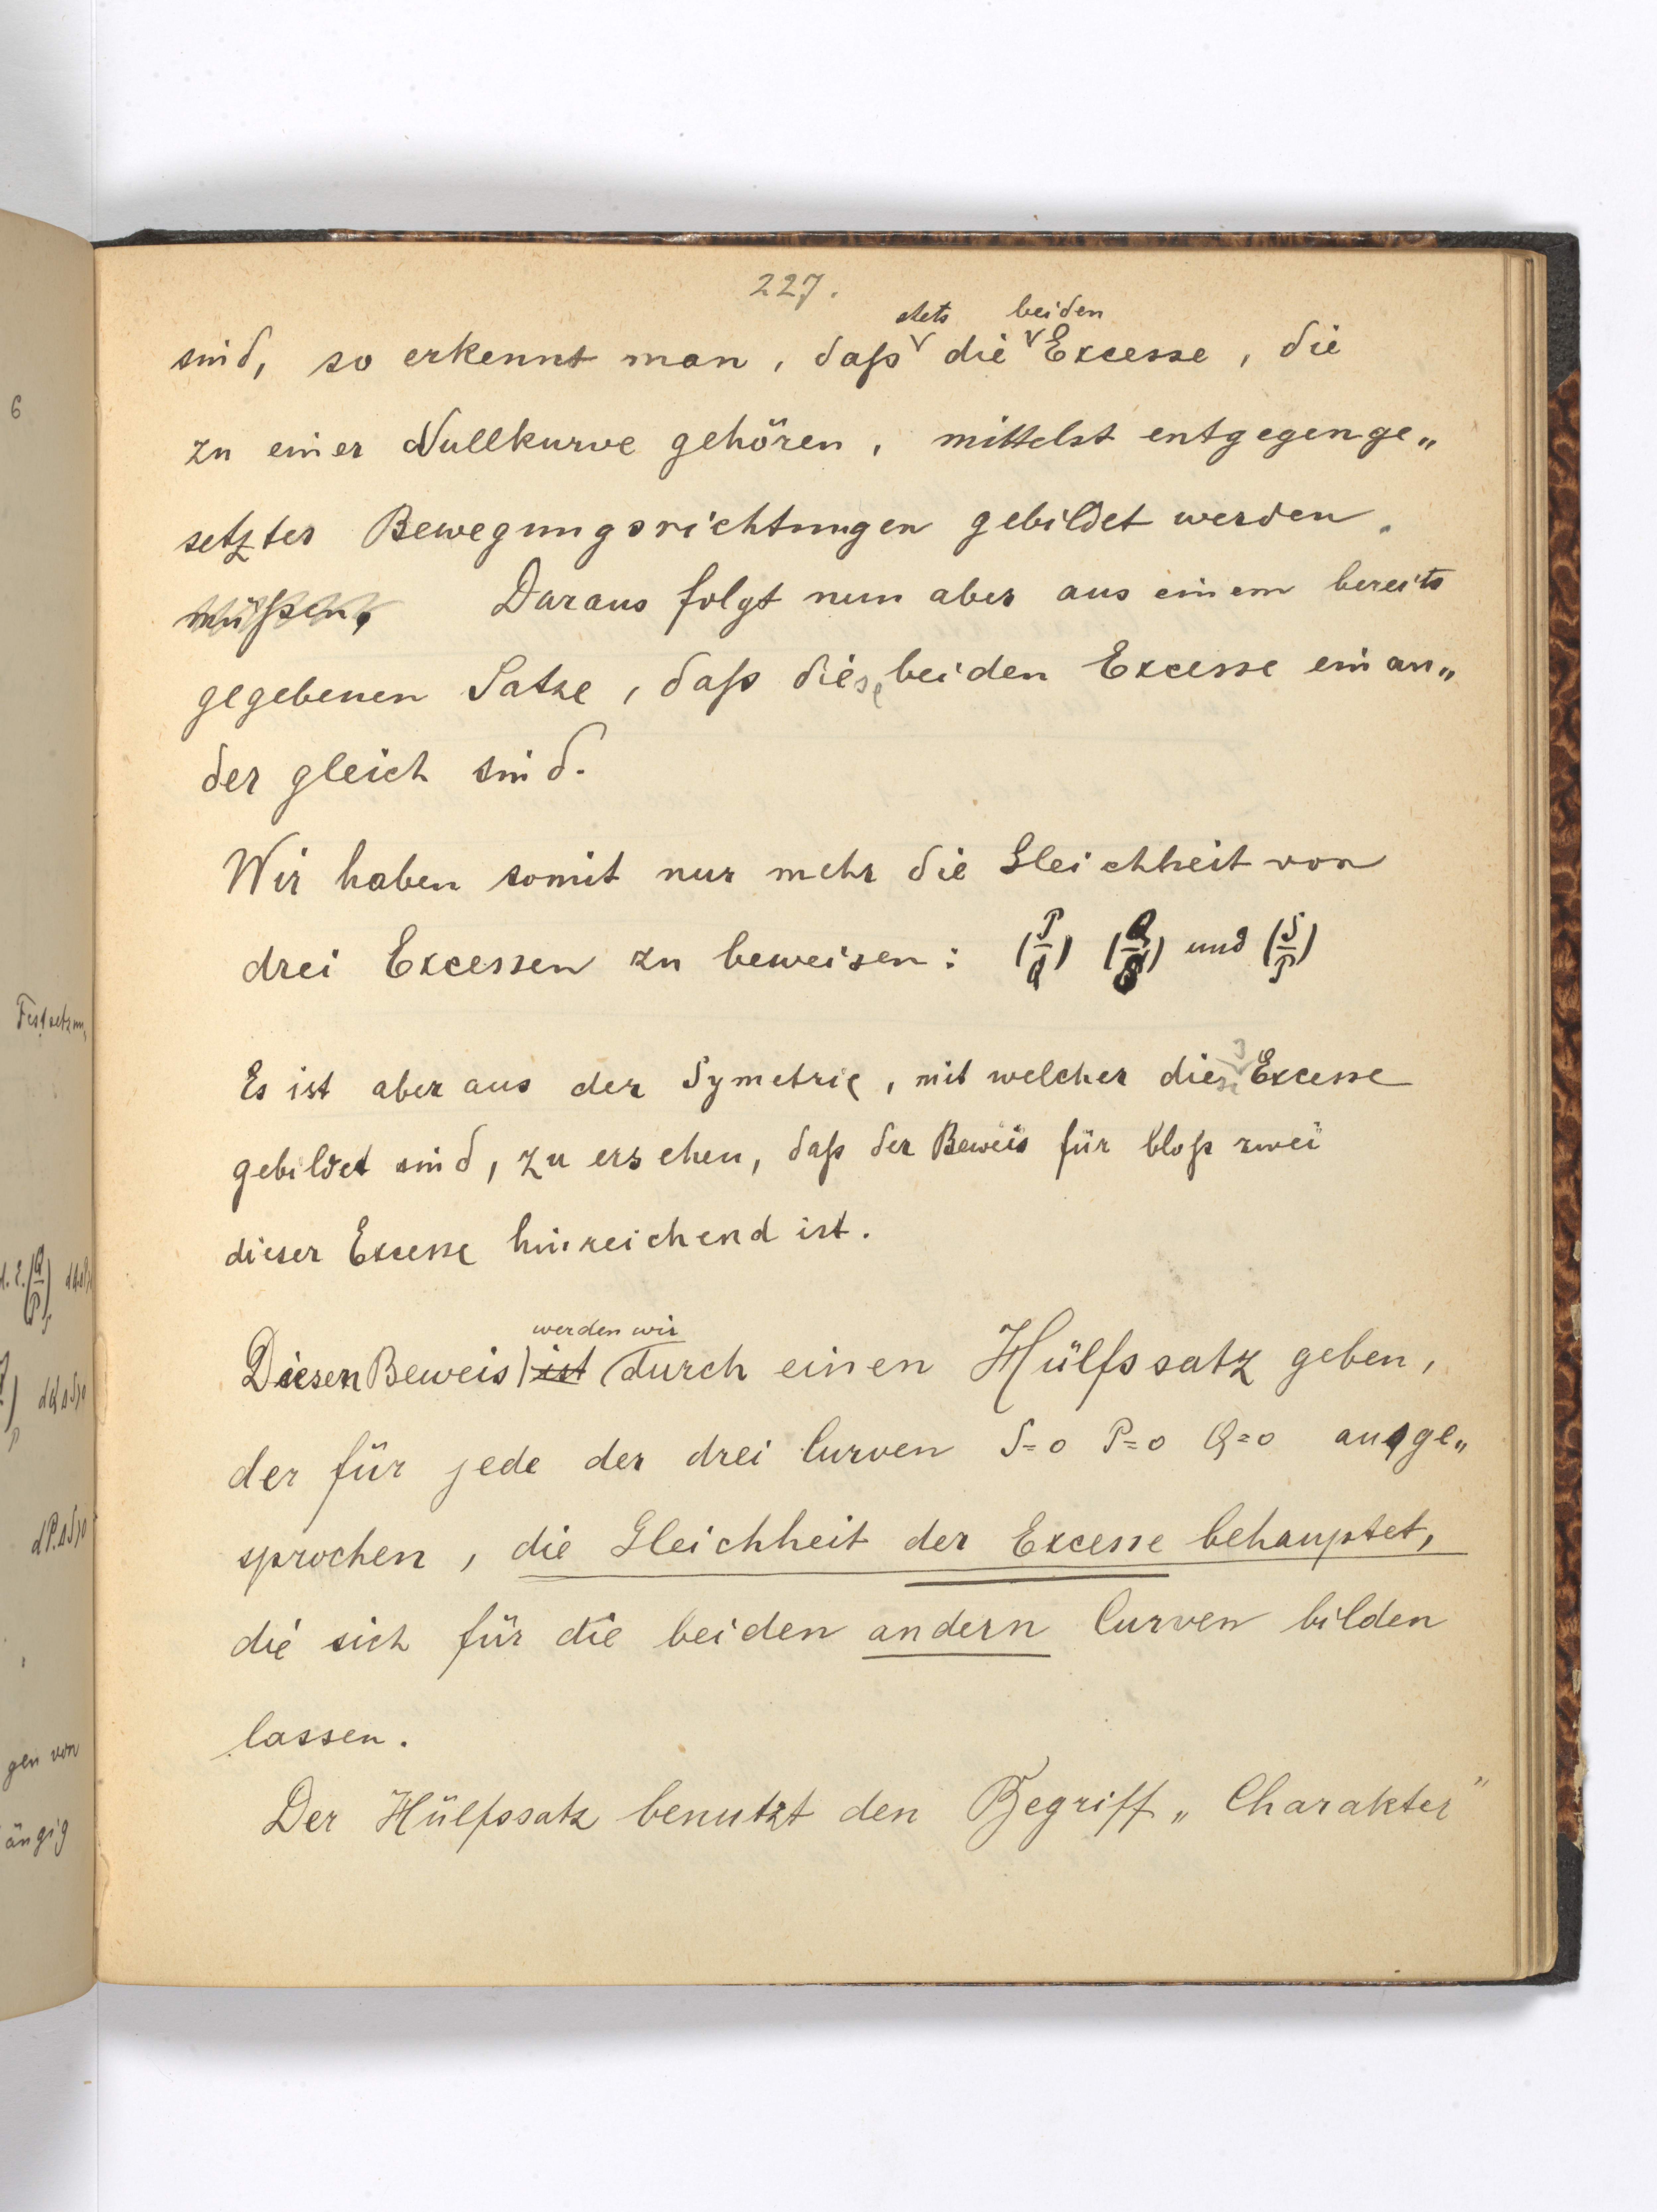 227.
stets beiden
sind, so erkennt man, daß die Excesse, die
zu einer Nullkurve gehören, mittelst entgegenge„
setzter Bewegungsrichtungen gebildet werden.
müßen. Daraus folgt nun aber aus einem bereits
gegebenen Satze, daß diese beiden Excesse einan„
der gleich sind.
Wir haben somit nur mehr die Gleichheit von
drei Excessen zu beweisen: (P/Q) (Q/S) und (S/P)
Es ist aber aus der Symetrie, mit welcher diese 3 Excesse
gebildet sind, zu ersehen, daß der Beweis für bloß zwei
dieser Excesse hinreichend ist.
werden wir
Diesen Beweis ist durch einen Hülfssatz geben,
der für jede der drei Curven S=0 P=0 Q=0 ausge„
sprochen, die Gleichheit der Excesse behauptet,
die sich für die beiden andern Curven bilden
lassen.
Der Hülfssatz benutzt den Begriff „Charakter"
6
Festsetzun
dP.dS>0
gen von
ängig